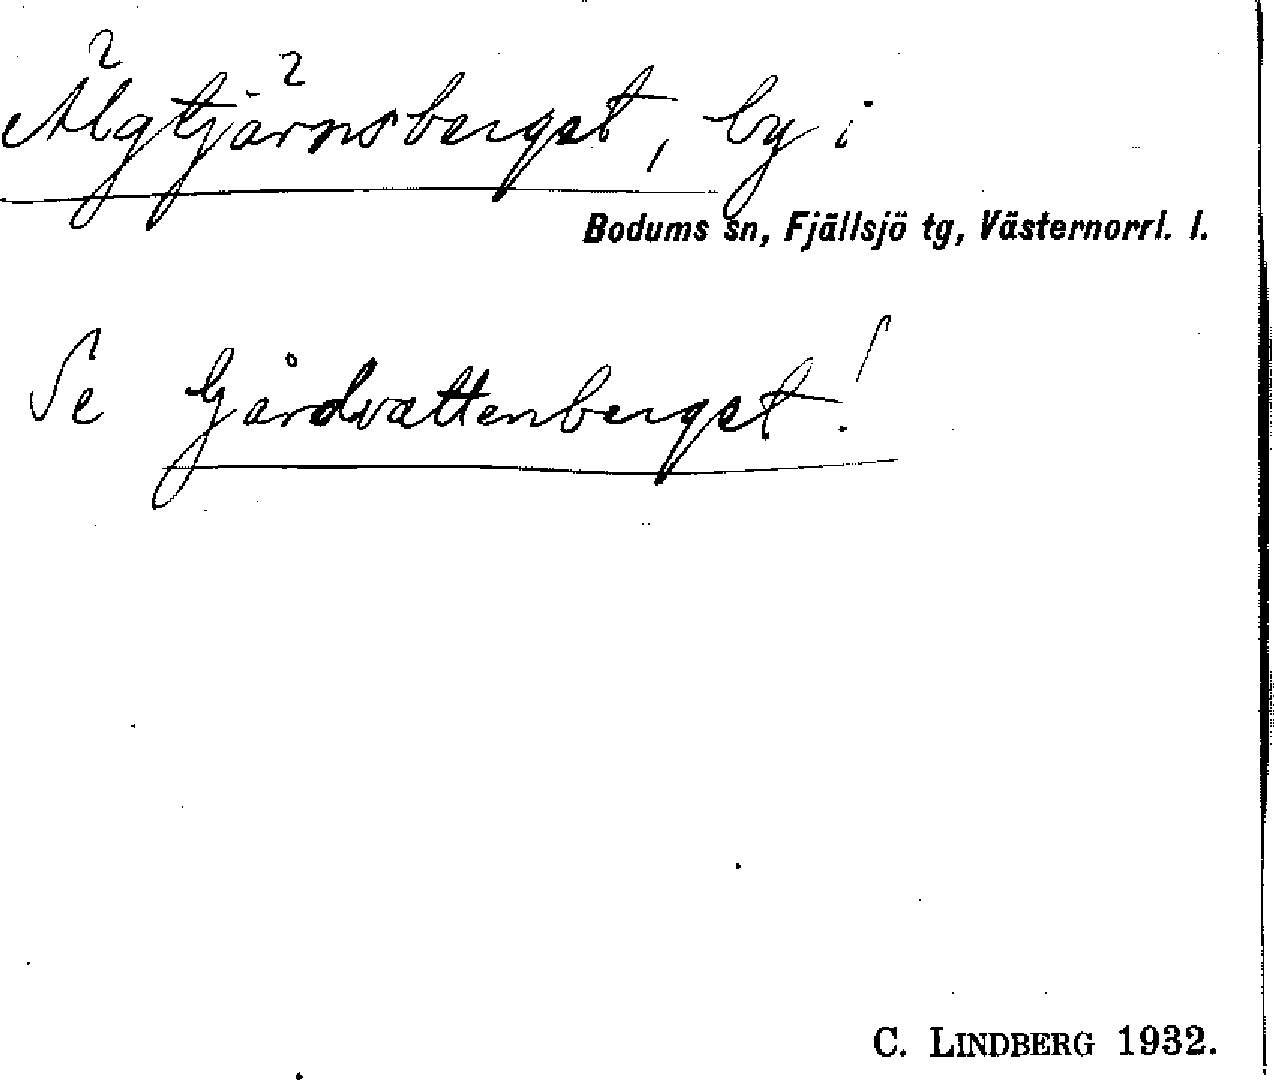 Älgtjärnsberget, by i
Bodums sn, Fjällsjö tg, Västernorrl. l.
Se Gårdvattenberget!
C. LINDBERG 1932.